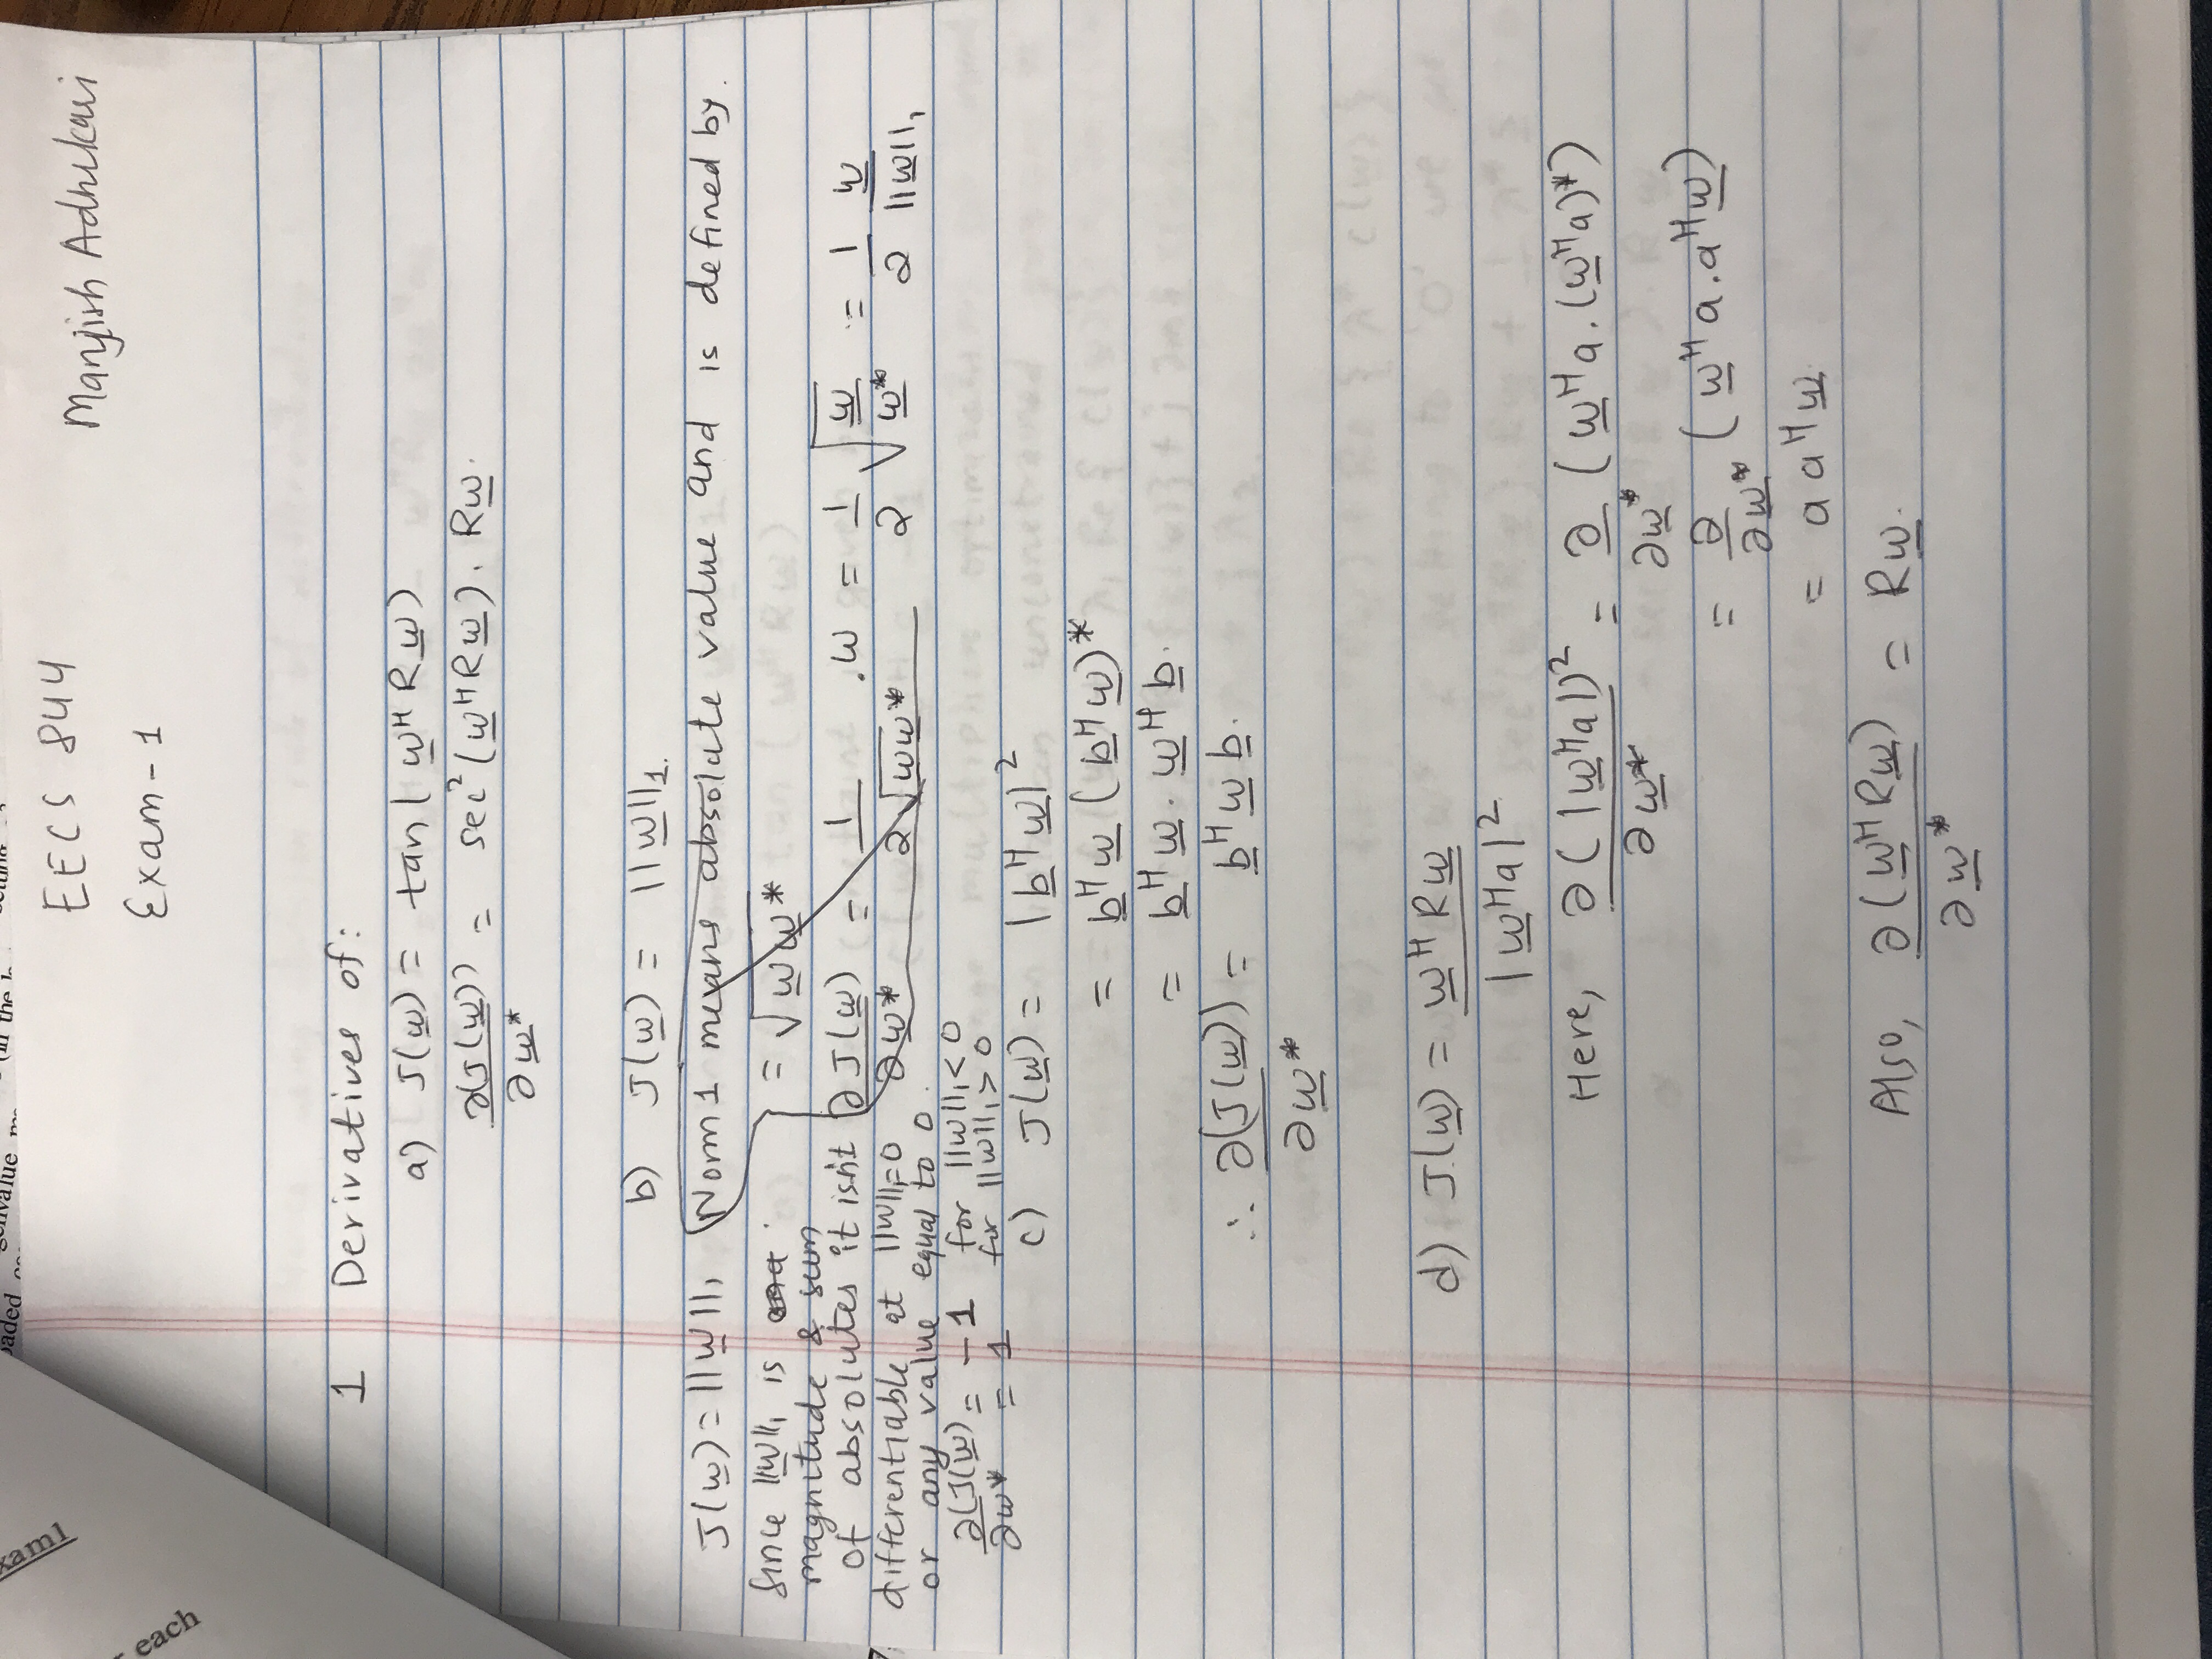 xam1
each
EECS 844
Manjish Adhikari
Exam - 1
1 Derivatives of:
a) J(w) = tan( w^H R w)
∂(J(w)) / ∂w* = sec²(w^H R w). Rw.
b) J(w) = ||w||₁.
J(w) = ||w||₁ Norm 1 means absolute value and is defined by.
= √(w w*)
∂J(w) / ∂w* = 1 / 2√(ww*) .w = 1/2 √(w/w*) = 1/2 w/||w||₁
Since ||w||₁ is
magnitude & sum
of absolutes it isn't
differentiable at ||w||₁=0
or any value equal to 0.
∂(J(w) / ∂w* = -1 for ||w||₁<0
= 1 for ||w||₁>0
c) J(w) = |b^H w|²
= b^H w (b^H w)*
= b^H w. w^H b.
∴ ∂(J(w)) / ∂w* = b^H w b.
d) J(w) = w^H R w / |w^H a|²
Here, ∂(|w^H a|)² / ∂w* = ∂/∂w* (w^H a.(w^H a)*)
= ∂/∂w* (w^H a.a^H w)
= a a^H w
Also, ∂(w^H R w) / ∂w* = Rw.